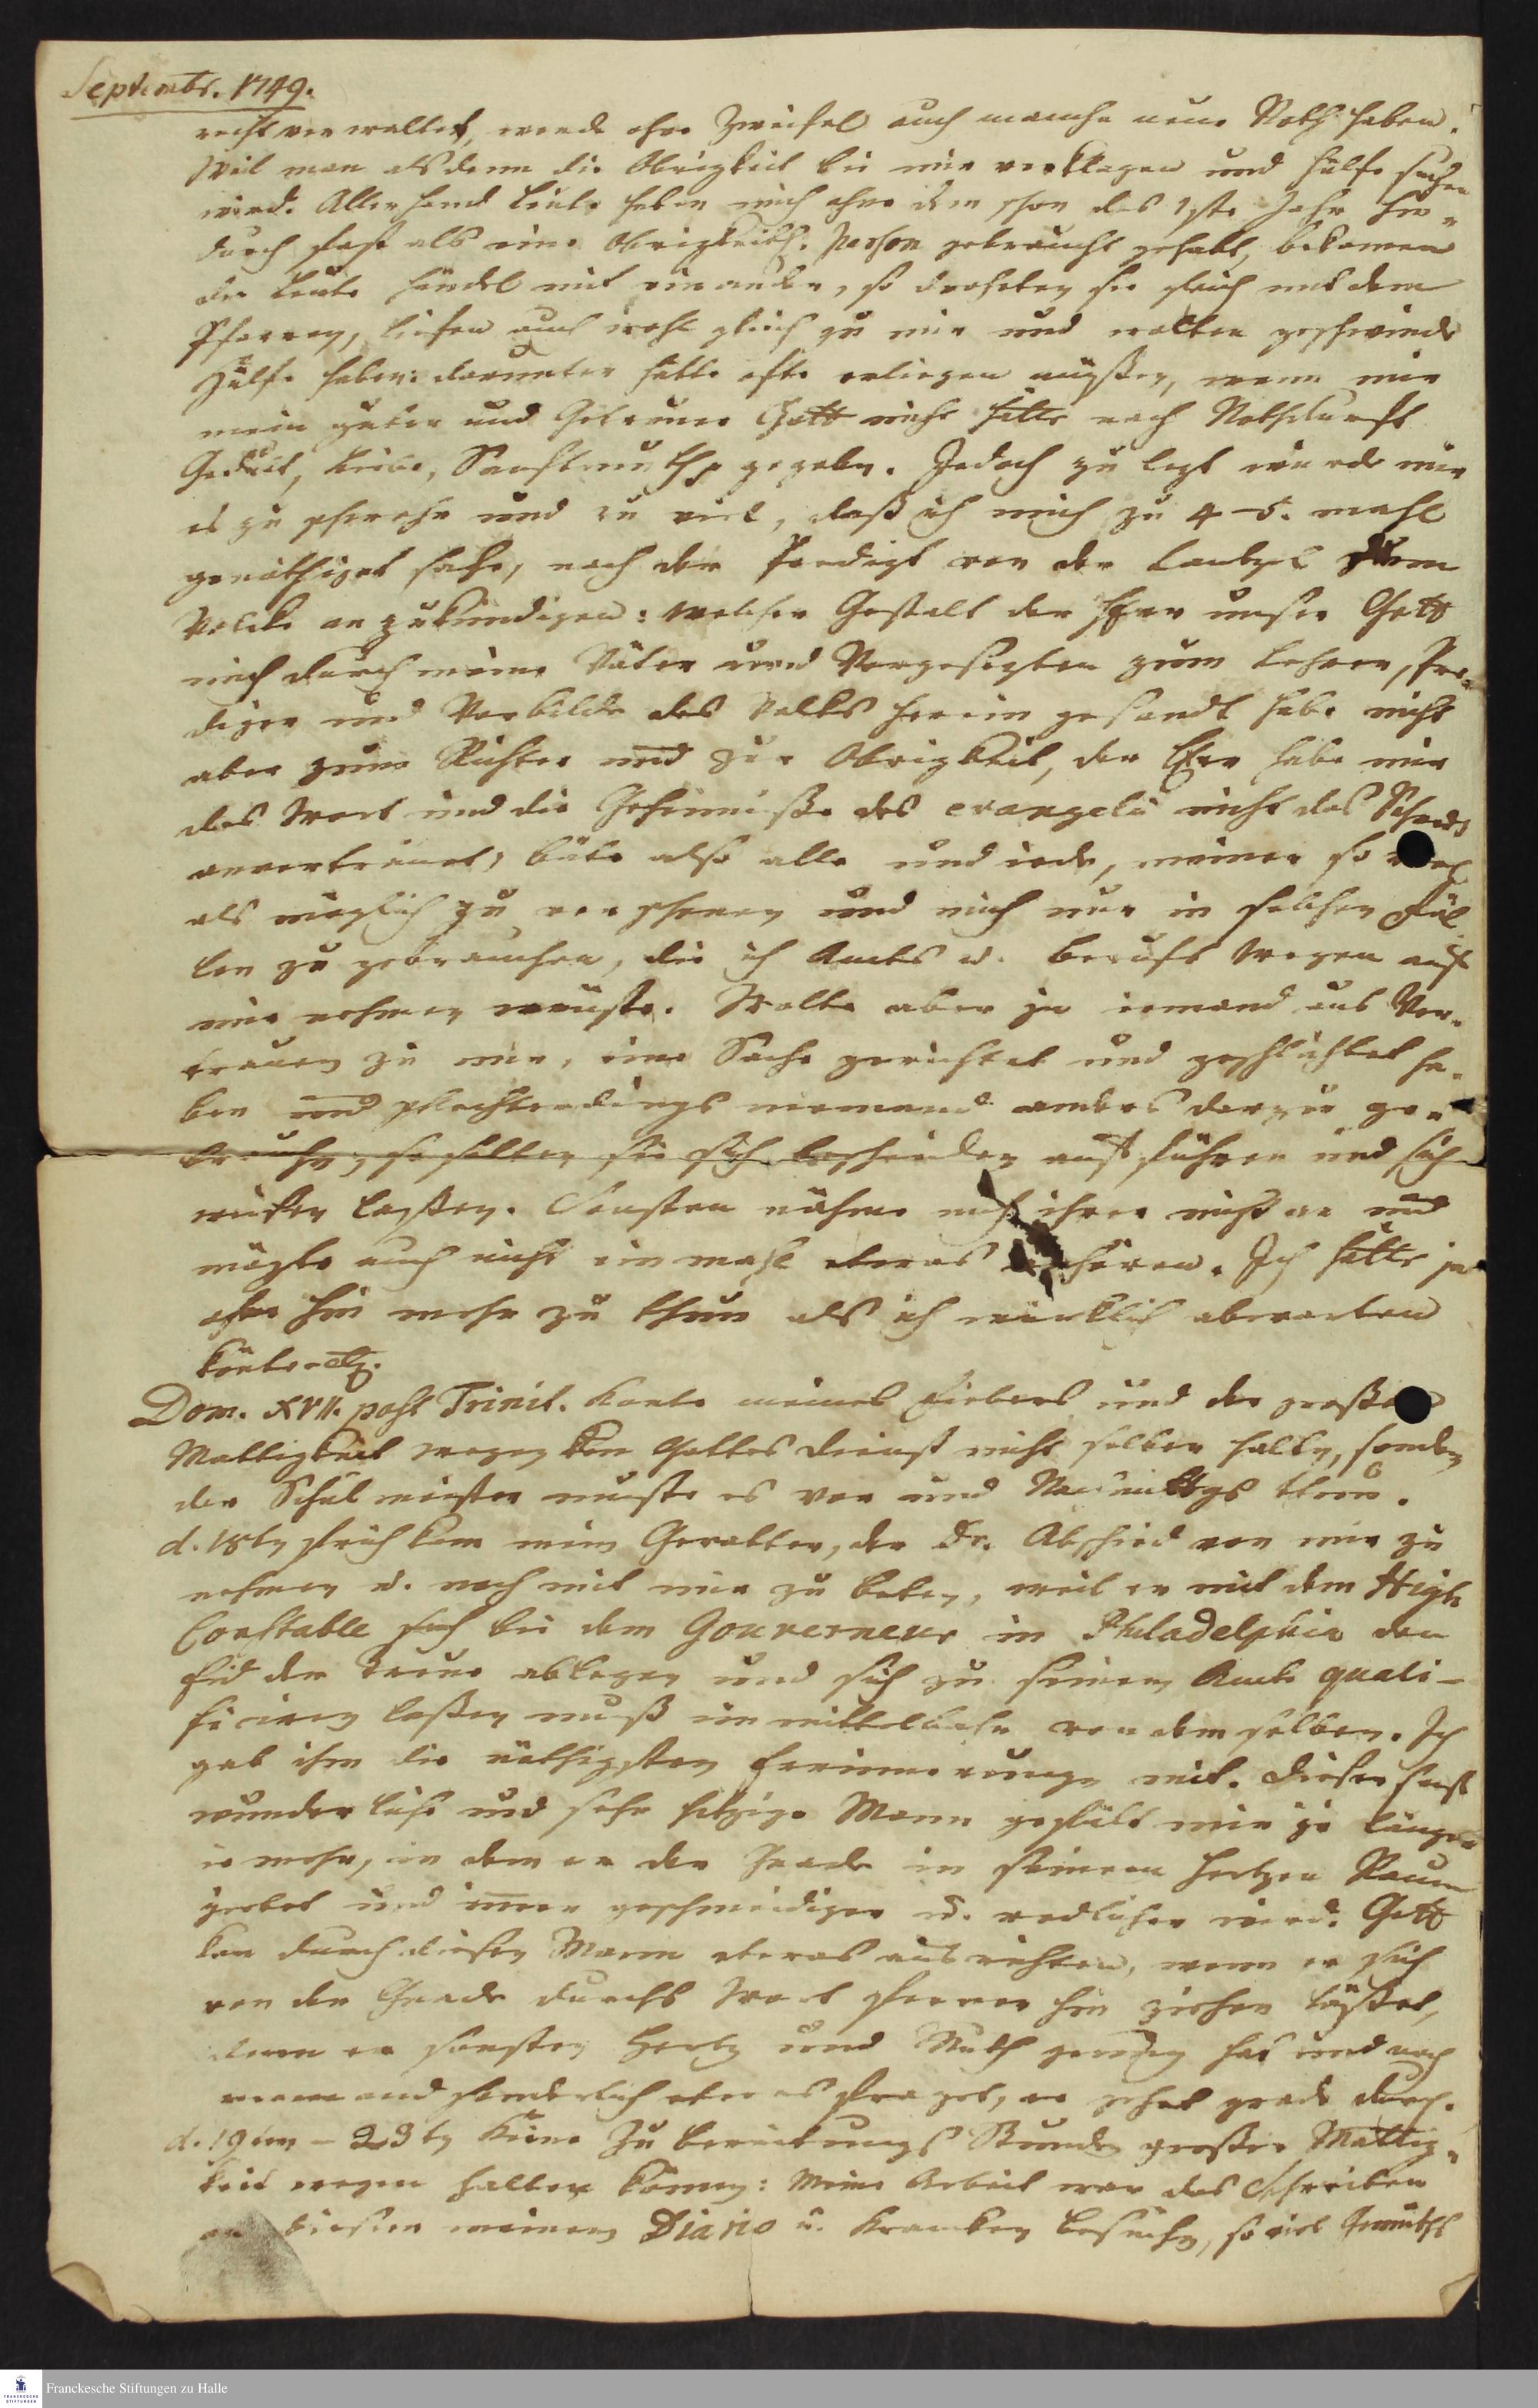 Septembr. 1749.
recht verwaltet, werde ohne Zweifel auch manche neue Noth haben.
Weil man alsdenn die Obrigkeit bei mir verklagen und Hülfe suchen
wird. Allerhand Leute haben mich ohne dem schon das 1ste Jahr hin-
durch fast als eine Obrigkeitl. Person gebraucht gehabt, bekamen
die Leute Händel mit einander, so droheten sie gleich mit dem
Pfarrer, liefen auch wohl gleich zu mir und wolten geschwinde
Hülfe haben: darunter hätte ofte erliegen müßen, wenn mir
mein guter und Getreuer Gott nicht hätte nach Nothdurft
Gedult, Liebe, Sanftmuth p gegeben. Jedoch zu lezt wurde mir
es zu schwehr und zu viel, daß ich mich zu 4-5. mahl
genöthiget sahe, nach der Predigt von der Cantzel dem
Volcke anzukündigen: welcher Gestalt der Herr unser Gott
mich durch meine Väter und Vorgesezten zum Lehrer, Pre-
diger und Vorbilde des Volks herein gesandt habe nicht
aber zum Richter und zur Obrigkeit, der Herr habe mir
das Wort und die Geheimniße des evangelii nicht das Schwerdt
anvertrauet, bäte also alle und iede, meiner so viel
als möglich zu verschonen und mich nur in solchen Fäl
len zu gebrauchen, die ich Amts u. Berufs wegen auf
mir nehmen müste. Wolte aber ja iemand aus Ver-
trauen zu mir, eine Sache gerichtet und geschlichtet ha-
ben und schlechterdings niemand anders darzu ge-
brauchen, so solten sie sich bescheiden aufführen und sich
weisen laßen. Sonsten nähme mich ihrer nicht an und
mögte auch nicht einmahl etwas hören. Ich hätte ja
ohne hin mehr zu thun als ich würcklich abwarten
könte etc.
Dom. XVII. post Trinit. konte meines Fiebers und der großen
Mattigkeit wegen den Gottesdienst nicht selber halten, sondern
der Schulmeister muste es vor und Nachmittags thun.
d. 18ten früh kam mein Gevatter, der Dr. Abschied von mir zu
nehmen u. noch mit mir zu beten, weil er mit dem High
Constable sich bei dem Gouverneur in Philadelphia den
Eid der Treue ablegen und sich zu seinem Amte quali-
ficiren laßen muß unmittelbahr von demselben. Ich
gab ihm die nöthigsten Erinnerungen mit. Dieser sonst
wunderliche und sehr hitzige Mann gefält mir je länger
ie mehr, in dem er der Gnade in seinem Hertzen Raum
giebet und immer geschmeidiger u. redlicher wird. Gott
kan durch diesen Mann etwas ausrichten, wenn er sich
von der Gnade durchs Wort ferner hin ziehen läßet,
denn er sonsten Hertz und Muth genug hat und nach
niemand sonderlich etwas fraget, er gehet grade durch.
d. 19ten - 23ten keine Zubereitungs Stunden großer Mattig-
keit wegen halten können: Meine Arbeit war das Schreiben
an diesem meinem Diario u. Krancken besuchen, so viel Gemüths
Franckesche Stiftungen zu Halle